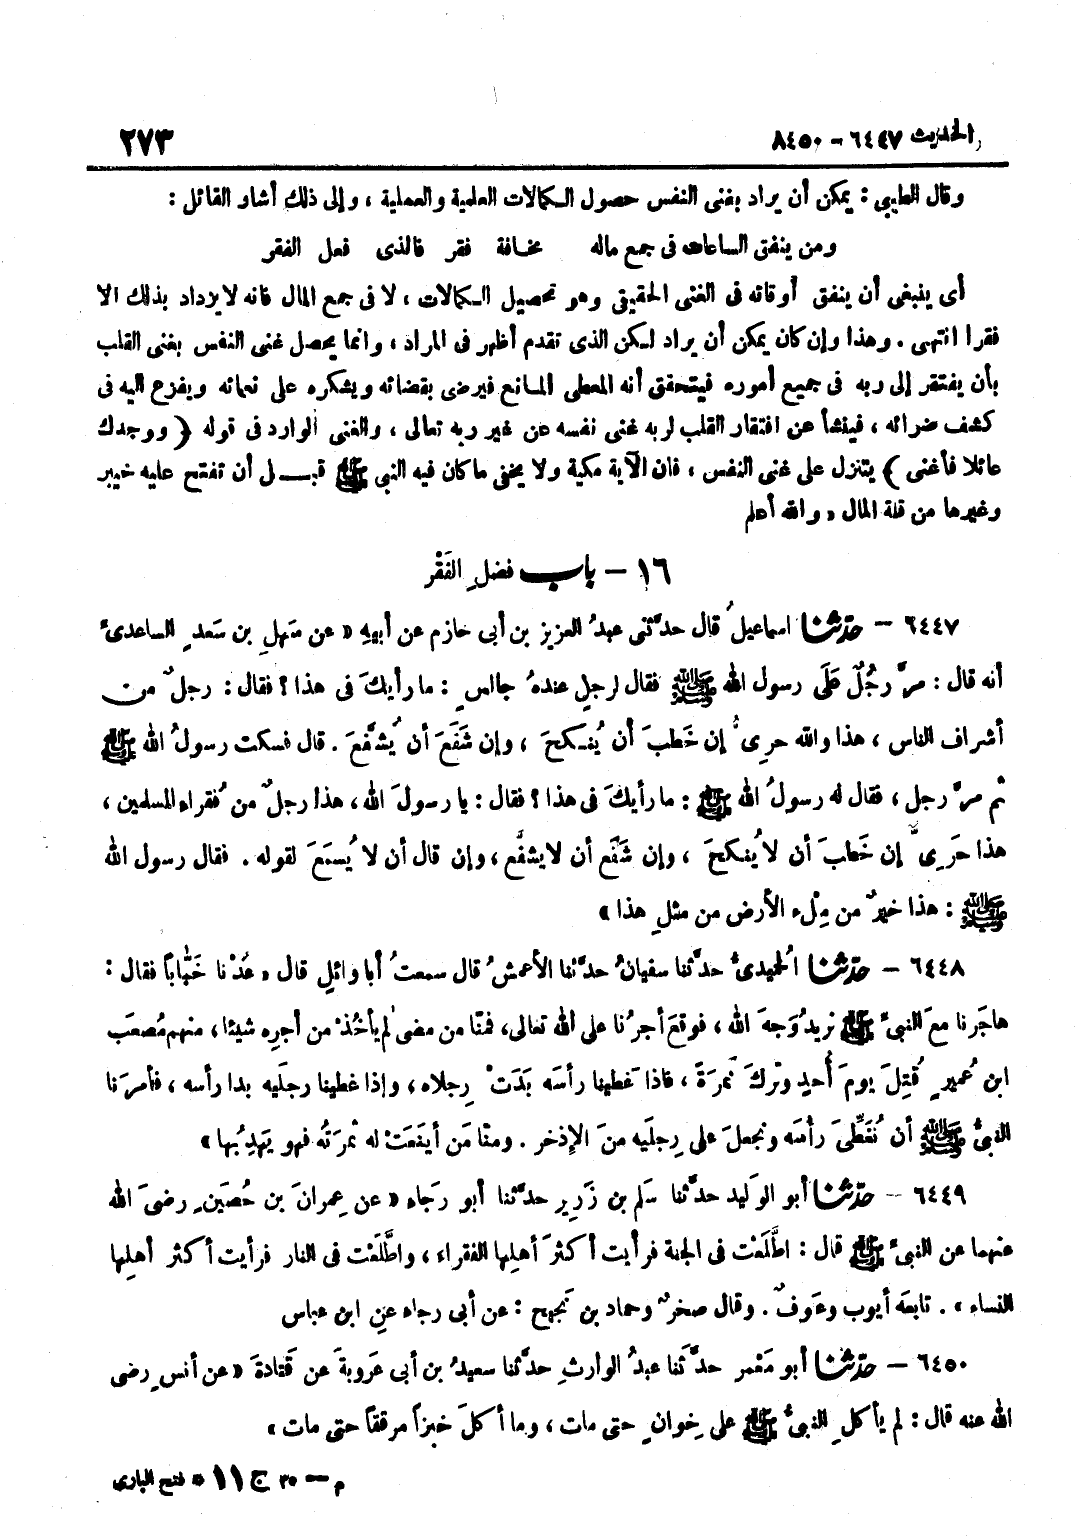 الحديث ٦٤٤٧ - ٨٤٥٠ ٢٧٣
وقال الطيبي : يمكن أن يراد بغنى النفس حصول الكمالات العلمية والعملية ، وإلى ذلك أشار القائل :
ومن ينفق الساعات فى جمع ماله مخافة فقر فالذى فعل الفقر
أى ينبغى أن ينفق أوقاته فى الغنى الحقيقى وهو تحصيل الكمالات ، لا فى جمع المال فانه لا يزداد بذلك الا
فقرا انتهى . وهذا وإن كان يمكن أن يراد لكن الذى تقدم أظهر فى المراد ، وانما يحصل غنى النفس بغنى القلب
بأن يفتقر إلى ربه فى جميع أموره فيتحقق أنه المعطى المانع فيرضى بقضائه ويشكره على نعمائه ويفزع اليه فى
كشف ضرائه ، فينشأ عن افتقار القلب لربه غنى نفسه عن غير ربه تعالى ، والغنى الوارد فى قوله ﴿ ووجدك
عائلا فأغنى ﴾ يتنزل على غنى النفس ، فان الآية مكية ولا يخفى ما كان فيه النبى ﷺ قبـل أن تفتح عليه خيبر
وغيرها من قلة المال ، والله أعلم
١٦ - باب فضلِ الفَقْر
٦٤٤٧ - حدّثنا اسماعيلُ قال حدَّثنى عبدُ العزيز بن أبى حازم عن أبيهِ « عن سَهلِ بن سَعدٍ الساعدىِّ
أنه قال : مرَّ رجُلٌ عَلَى رسول الله ﷺ فقال لرجلٍ عندهُ جالسٍ : ما رأيكَ فى هذا ؟ فقال : رجلٌ من
أشراف الناس ، هذا والله حرِىٌّ إن خَطبَ أن يُنكحَ ، وإن شَفَعَ أن يُشفَّعَ . قال فسكت رسولُ الله ﷺ
ثم مرَّ رجل ، فقال له رسولُ الله ﷺ : ما رأيكَ فى هذا ؟ فقال : يا رسولَ الله ، هذا رجلٌ من فُقراءِ المسلمين ،
هذا حَرِىٌّ إن خَطبَ أن لا يُنكحَ ، وإن شَفَع أن لا يشفَّع ، وإن قال أن لا يُسمَعَ لقوله . فقال رسول الله
ﷺ : هذا خيرٌ من مِلْء الأرض من مثلِ هذا »
٦٤٤٨ - حدّثنا الحُميدىُّ حدَّثنا سفيانُ حدَّثنا الأعمشُ قال سمعتُ أبا وائلٍ قال « عُدْنا خَبَّاباً فقال :
هاجَرنا معَ النبىِّ ﷺ نريدُ وَجهَ الله ، فوقعَ أجرُنا على الله تعالى ، فمنَّا من مضى لم يأخُذْ من أجرِه شيئا ، منهم مُصعَب
ابن عُميرٍ قُتِلَ يومَ أُحدٍ وتركَ نمرَةً ، فاذا غطينا رأسَه بَدَتْ رِجلاه ، وإذا غطينا رجلَيه بدا رأسه ، فأمرَنا
النبىُّ ﷺ أن نُغَطِّىَ رأسَه ونجعلَ على رِجلَيه منَ الإذخر . ومنَّا مَن أينَعَتْ له ثمرَتُه فهو يَهدِبُها »
٦٤٤٩ - حدّثنا أبو الوَليد حدَّثنا سَلم بن زَرِير حدَّثنا أبو رجاء « عن عِمرانَ بن حُصَينٍ رضىَ الله
عنهما عن النبىِّ ﷺ قال : اطَّلَعْت فى الجنة فرأيت أكثرَ أهلِها الفقراء ، واطَّلَعْت فى النار فرأيت أكثر أهلِها
النساء » . تابعَه أيوب وعَوفٌ . وقال صخرٌ وحماد بن نَجيح : عن أبى رجاء عنِ ابن عباس
٦٤٥٠ - حدّثنا أبو مَعْمر حدَّثنا عبدُ الوارثِ حدَّثنا سعيدُ بن أبى عَروبةَ عن قَتادةَ « عن أنسٍ رضى
الله عنه قال : لم يأكلِ النبىُّ ﷺ على خِوانٍ حتى مات ، وما أكلَ خبزاً مرقَّقاً حتى مات »
م - ٣٥ ج ١١ * فتح البارى